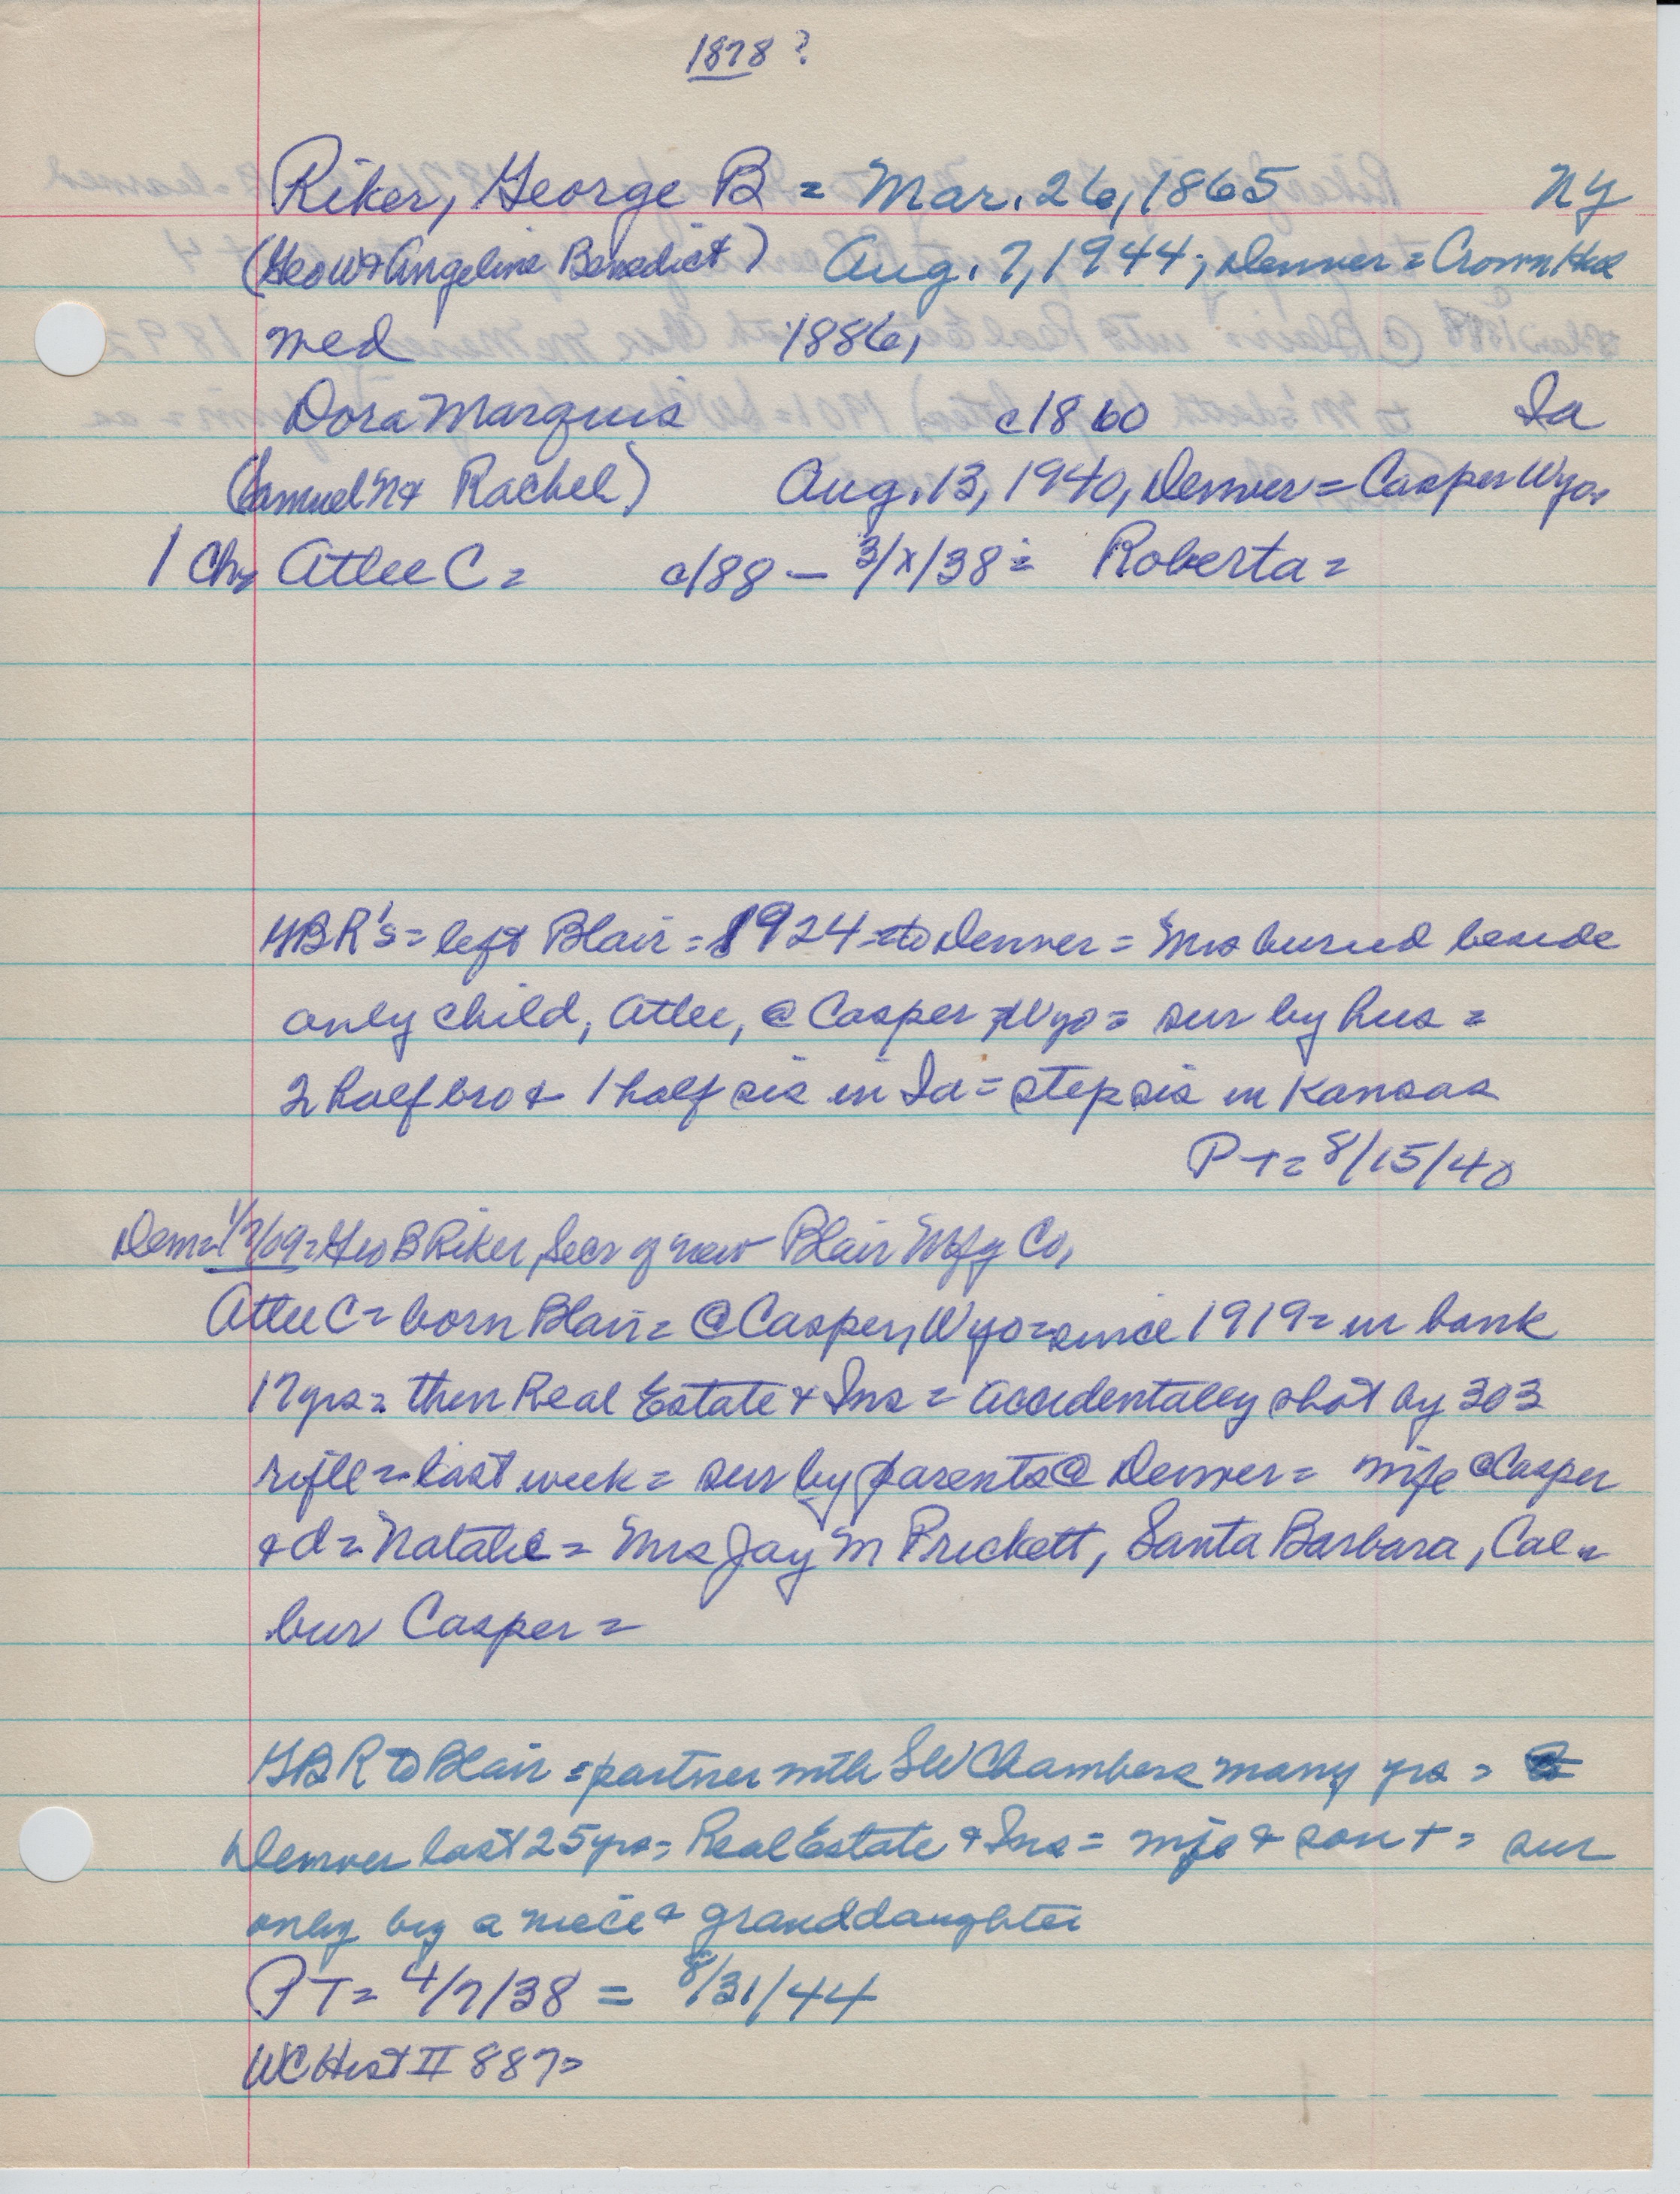 1878 ?
Riker, George B = Mar. 26, 1865 NY
(Geo W & Angeline Benedict) Aug. 7, 1944; Denver = Crown Hill
med 1886,
Dora Marquis c1860 Ia
(Samuel N & Rachel) Aug. 13, 1940, Denver = Casper Wyo.
1 Ch = Atlee C = c/88 – 3/x/38 = Roberta =
GBR's = left Blair = 1924 to Denver = Mrs buried beside
only child, Atlee, @ Casper Wyo = sur by hus =
2 half bro & 1 half sis in Ia = step sis in Kansas
PT = 8/15/40
Dem = /09 = Geo B Riker, Secr of new Blair Mfg Co,
Atlee C = born Blair = @ Casper, Wyo = since 1919 = in bank
17 yrs = then Real Estate & Ins = accidentally shot by 303
rifle = last week = sur by parents @ Denver = wife @ Casper
& d = Natalie = Mrs Jay M Prickett, Santa Barbara, Cal =
bur Casper =
GBR to Blair = partner with SW Chambers many yrs =
Denver last 25 yrs = Real Estate & Ins = wife & son + = sur
only by a niece & granddaughter
PT = 4/7/38 = 8/31/44
WC Hist II 887 =